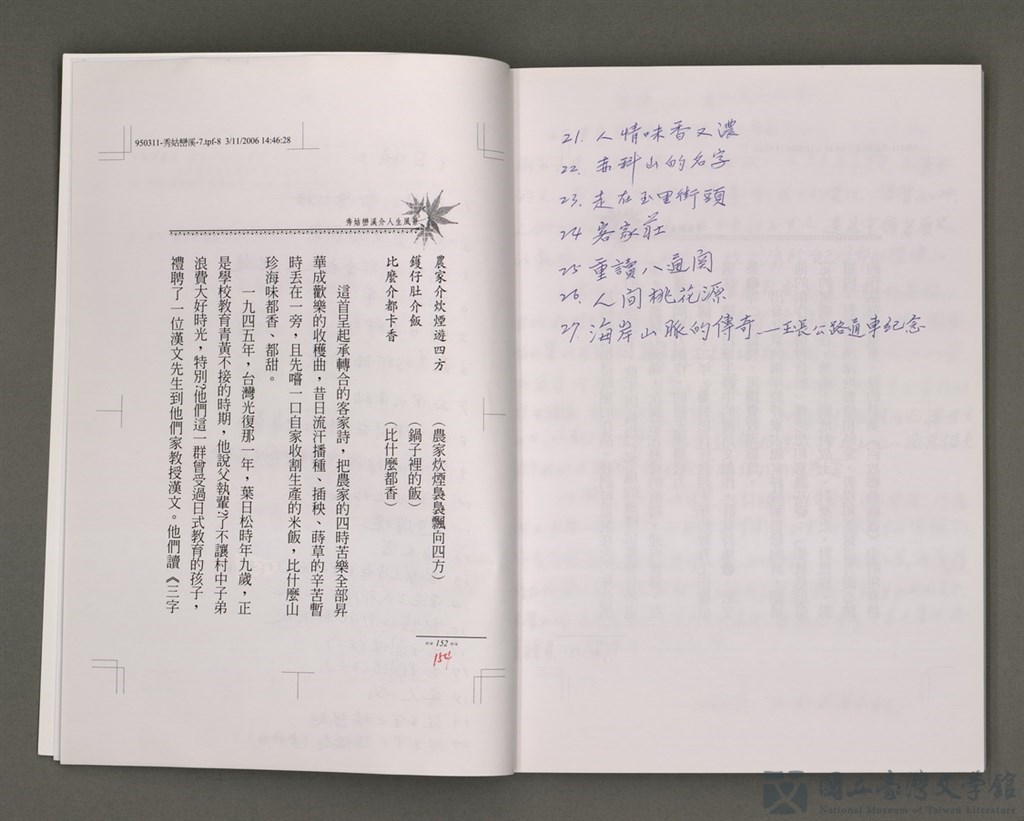 950311-秀姑巒溪-7.tpf-8 3/11/2006 14:46:28
秀姑巒溪介人生風景
農家介炊煙遊四方 (農家炊煙裊裊飄向四方)
鑊仔肚介飯 (鍋子裡的飯)
比麼介都卡香 (比什麼都香)
這首呈起承轉合的客家詩,把農家的四時苦樂全部昇
華成歡樂的收穫曲,昔日流汗播種、插秧、蒔草的辛苦暫
時丟在一旁,且先嚐一口自家收割生產的米飯,比什麼山
珍海味都香、都甜。
一九四五年,台灣光復那一年,葉日松時年九歲,正
是學校教育青黃不接的時期,他說父執輩?了不讓村中子弟
浪費大好時光,特別?他們這一群曾受過日式教育的孩子,
禮聘了一位漢文先生到他們家教授漢文。他們讀《三字
152
154
21. 人情味香又濃
22. 赤科山的名字
23. 走在玉里街頭
24 客家莊
25 重讀八通關
26. 人间桃花源
27. 海岸山脈的傳奇—玉長公路通車紀念
國立臺灣文學館
National Museum of Taiwan Literature